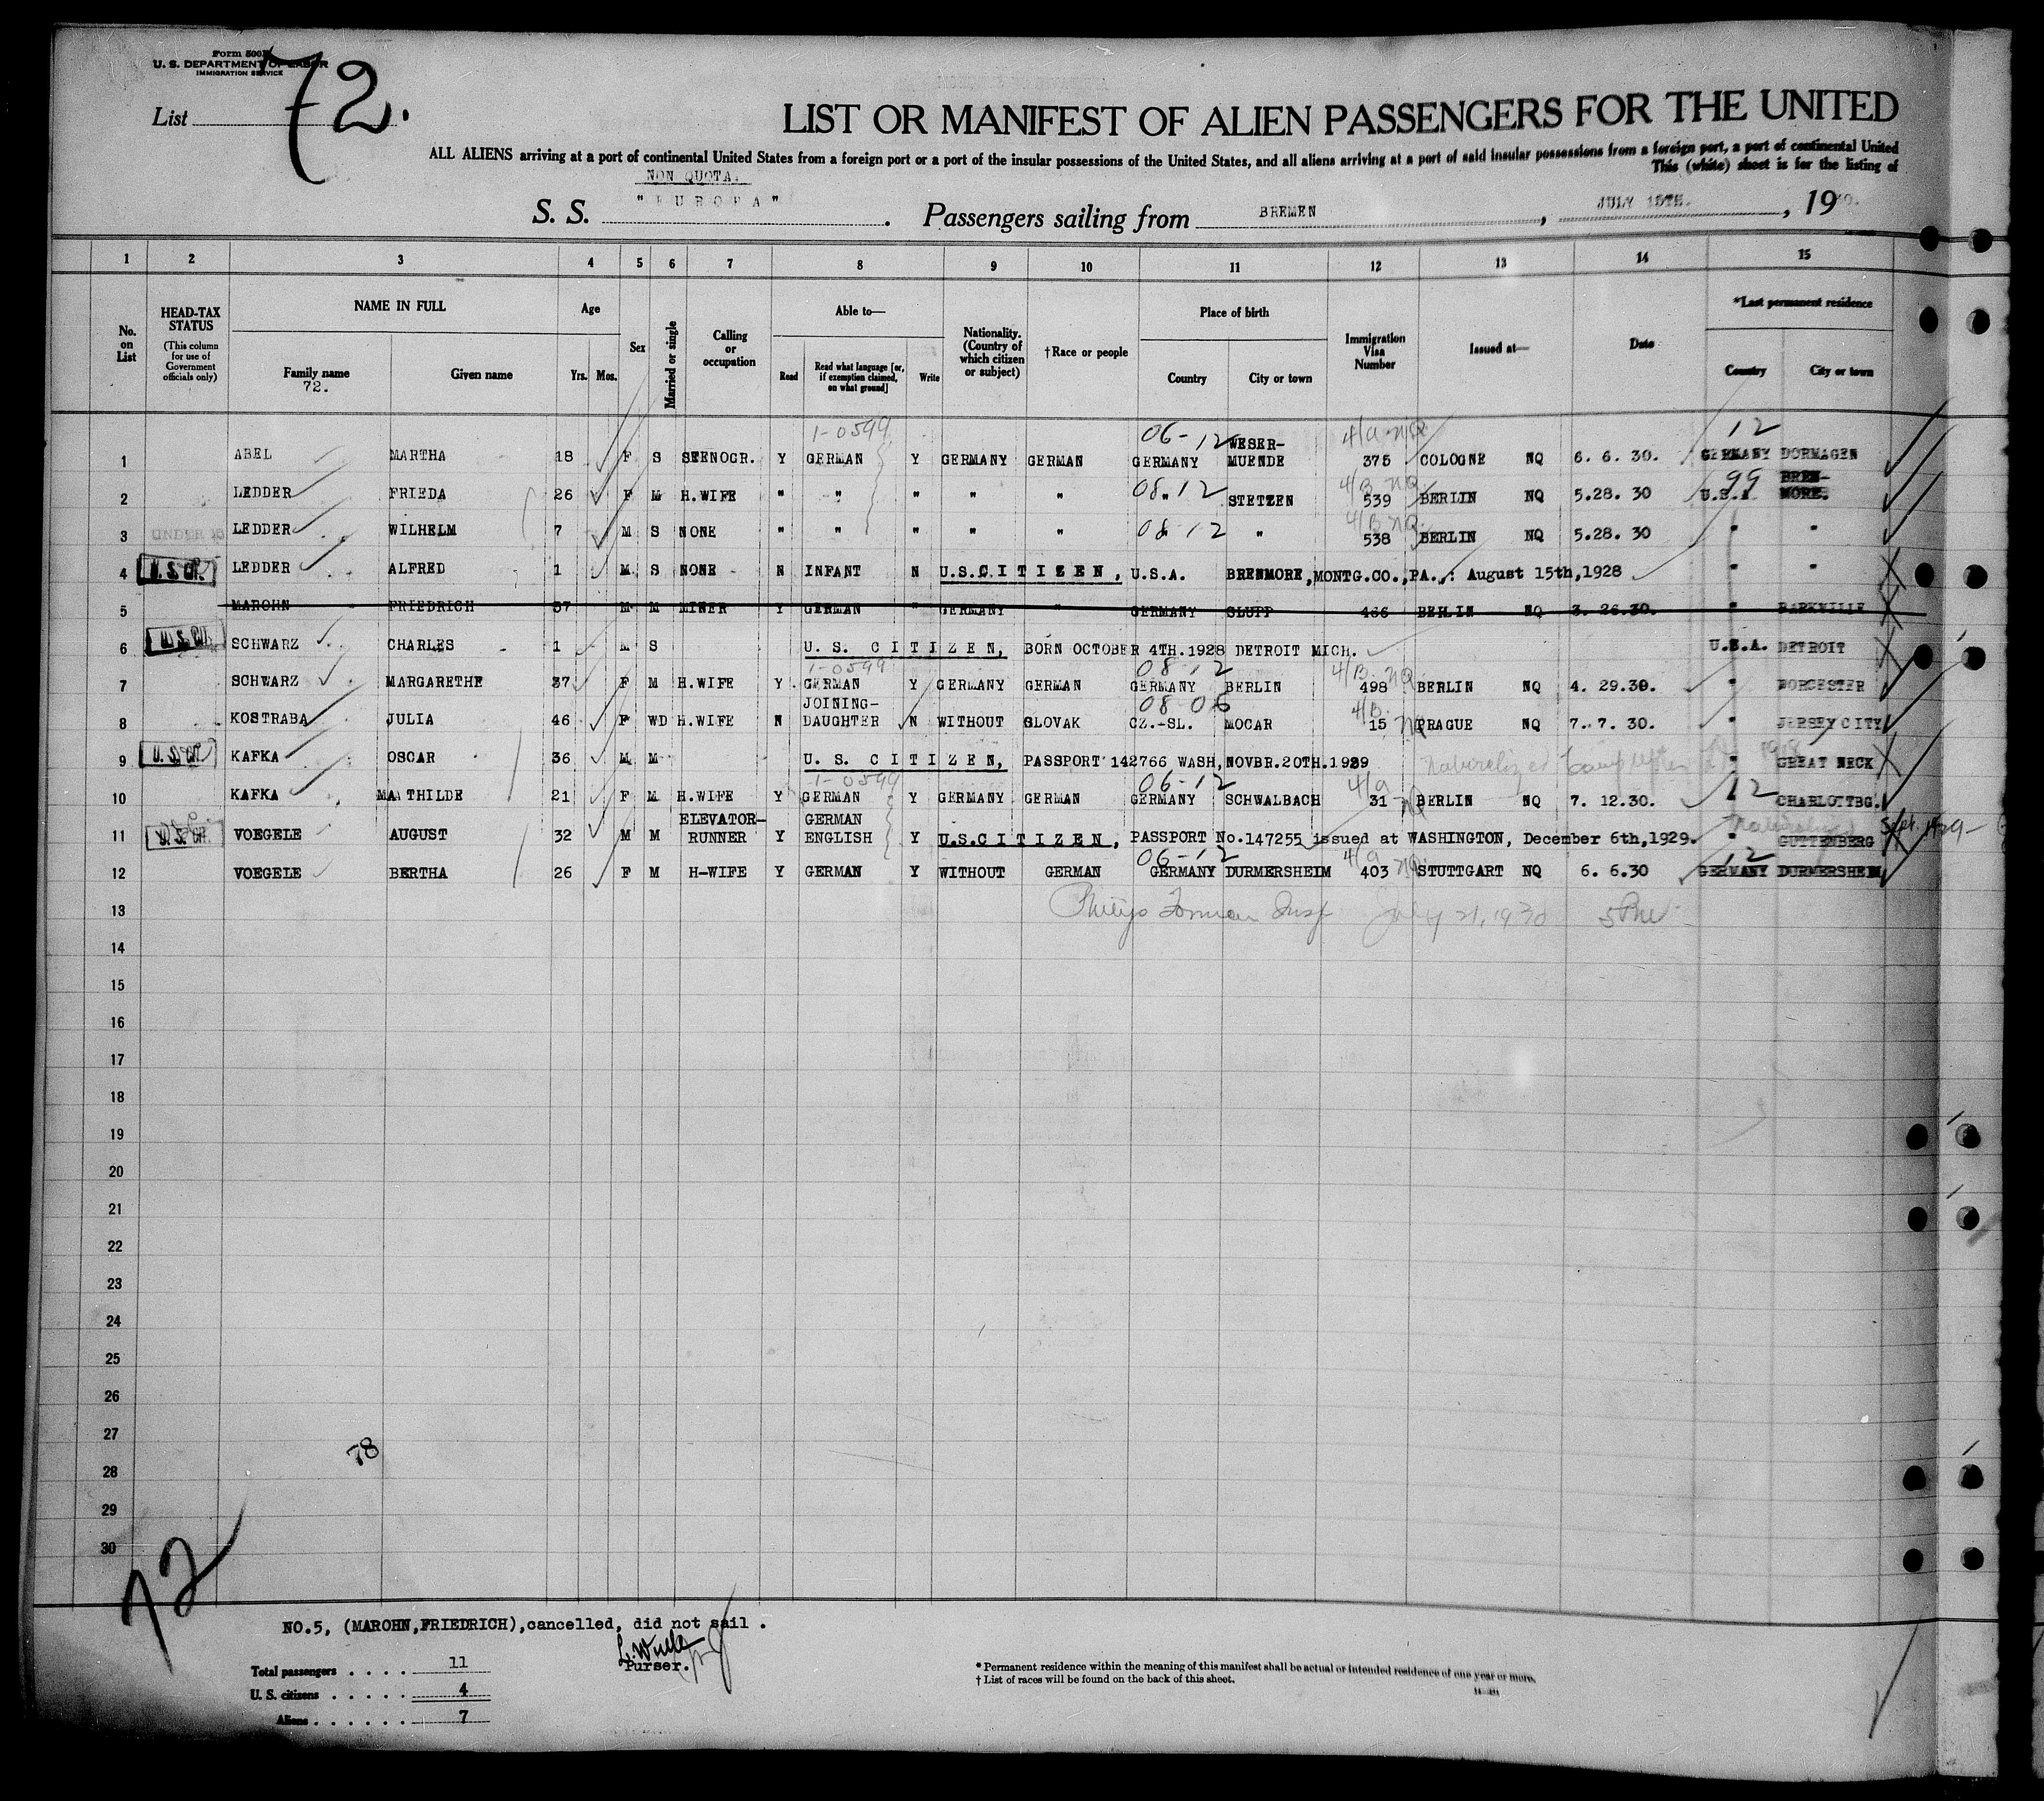 Form 500
U. S. DEPARTMENT OF LABOR
IMMIGRATION SERVICE
List 72.
LIST OR MANIFEST OF ALIEN PASSENGERS FOR THE UNITED
ALL ALIENS arriving at a port of continental United States from a foreign port or a port of the insular possessions of the United States, and all aliens arriving at a port of said insular possessions from a foreign port, a port of continental United
This (white) sheet is for the listing of
NON QUOTA.
S. S. "EUROPA". Passengers sailing from BREMEN, JULY 15TH., 19
1 2 3 4 5 6 7 8 9 10 11 12 13 14 15
No. on List
HEAD-TAX STATUS
(This column for use of Government officials only)
NAME IN FULL
Family name
72.
Given name
Age
Yrs. Mos.
Sex
Married or single
Calling or occupation
Able to—
Read
Read what language [or, if exemption claimed, on what ground]
Write
Nationality. (Country of which citizen or subject)
†Race or people
Place of birth
Country
City or town
Immigration Visa Number
Issued at—
Date
*Last permanent residence
Country
City or town
1-0599 06-12 4/a NQ 12
1 ABEL MARTHA 18 F S STENOGR. Y GERMAN Y GERMANY GERMAN GERMANY WESER-MUENDE 375 COLOGNE NQ 6. 6. 30. GERMANY DORMAGEN
08 12 4/B NQ 99
2 LEDDER FRIEDA 26 F M H.WIFE " " " " " " STETZEN 539 BERLIN NQ 5.28. 30 U.S.A BREN-MORE.
08 12 4/B NQ
3 UNDER 16 LEDDER WILHELM 7 M S NONE " " " " " " 538 BERLIN NQ 5.28. 30 " "
4 U.S. CIT. LEDDER ALFRED 1 M S NONE N INFANT N U.S.CITIZEN, U.S.A. BRENMORE,MONTG.CO.,PA.,: August 15th,1928 " "
5 MAROHN FRIEDRICH 37 M M MINER Y GERMAN " GERMANY " GERMANY SLUPP 466 BERLIN NQ 3. 26.30. " PARKVILLE
6 U.S. CIT. SCHWARZ CHARLES 1 M S U. S. CITIZEN, BORN OCTOBER 4TH.1928 DETROIT MICH. U.S.A. DETROIT
1-0599 08 12 4/B NQ
7 SCHWARZ MARGARETHE 37 F M H.WIFE Y GERMAN Y GERMANY GERMAN GERMANY BERLIN 498 BERLIN NQ 4. 29.30. " WORCESTER
08 06 4/B NQ
8 KOSTRABA JULIA 46 F WD H.WIFE N JOINING-DAUGHTER N WITHOUT SLOVAK CZ.-SL. MOCAR 15 PRAGUE NQ 7. 7. 30. " JERSEY CITY
9 U.S. CIT. KAFKA OSCAR 36 M M U. S. CITIZEN, PASSPORT 142766 WASH,NOVBR.20TH.1929 Naturalized 1918 " GREAT NECK
1-0599 06-12 4/a NQ 12
10 KAFKA MATHILDE 21 F M H.WIFE Y GERMAN Y GERMANY GERMAN GERMANY SCHWALBACH 31 BERLIN NQ 7. 12.30. CHARLOTTBG.
11 U.S. CIT. VOEGELE AUGUST 32 M M ELEVATOR-RUNNER Y GERMAN ENGLISH Y U.S.CITIZEN, PASSPORT No.147255 issued at WASHINGTON, December 6th,1929. Naturalized Sept. 1929 " GUTTENBERG
06-12 4/a NQ 12
12 VOEGELE BERTHA 26 F M H-WIFE Y GERMAN Y WITHOUT GERMAN GERMANY DURMERSHEIM 403 STUTTGART NQ 6. 6.30 GERMANY DURMERSHEIM
13 Philip Forman Insp July 21, 1930
14
15
16
17
18
19
20
21
22
23
24
25
26
27
78
28
29
30
72
NO.5, (MAROHN,FRIEDRICH),cancelled, did not sail .
Purser.
Total passengers . . . . 11
U. S. citizens . . . . . 4
Aliens . . . . . . 7
* Permanent residence within the meaning of this manifest shall be actual or intended residence of one year or more.
† List of races will be found on the back of this sheet.